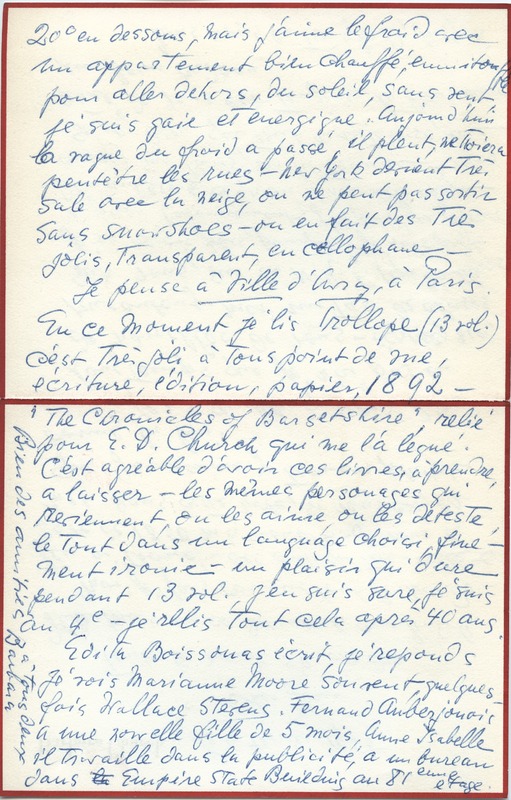 20° en dessous, mais j'aime le froid avec
un appartement bien chauffé, emmitouflée
pour aller dehors, du soleil, sans vent
je suis gaie et energique. Aujourd'hui
la vague du froid a passé, il pleut, nettoiera
peutêtre les rues – New York devient très
sale avec la neige, on ne peut pas sortir
sans snowshoes – on en fait des très
jolis, transparent, en cellophane –
Je pense à Ville d'Avray, à Paris.
En ce moment je lis Trollope (13 vol.)
c'est très joli à tous point de vue,
écriture, édition, papier, 1892 –
"The Chronicles of Barsetshire", relié
pour E. D. Church qui me l'a légué.
C'est agréable d'avoir ces livres, à prendre,
a laisser – les mêmes personages qui
reviennent, on les aime ou les déteste,
le tout dans un language choisi, fine-
ment ironie – un plaisir qui dure
pendant 13 vol. j'en suis sure, je suis
au 4e – je relis tout cela après 40 ans.
Edita Boissonas écrit, je reponds
Je vois Marianne Moore souvent, quelques-
fois Wallace Stevens. Fernand Auberjonois
a une nouvelle fille de 5 mois, Anne Isabelle
il travaille dans la publicité, a un bureau
dans Empire State Building au 81 eme étage.
Bien des amitiés à tous deux
Barbara